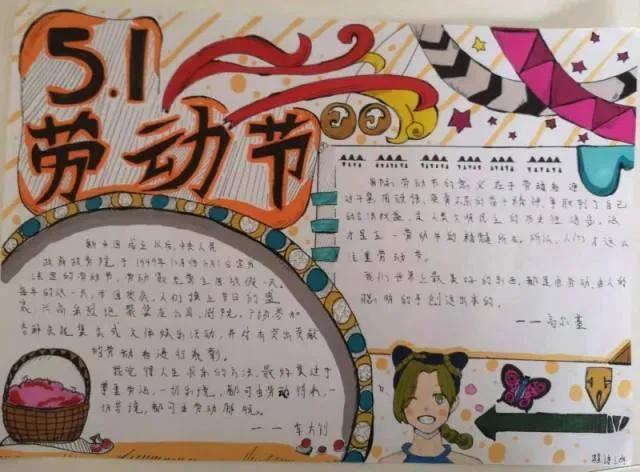 5.1
劳动节
J J
新中国成立以后，中央人民
政府政务院于1949年12月23日宣布
法定的劳动节，劳动最光荣全国放假一天。
每年的这一天，举国欢庆，人们换上节日的盛
装，兴高采烈地聚集在公园、剧院、广场，参加
各种庆祝集会或文体娱乐活动，并对有突出贡献
的劳动者进行表彰。
我觉得人生求乐的方法，最好莫过于
尊重劳动，一切乐境，都可由劳动得来，一
切苦境，都可由劳动解脱。
——李大钊
国际劳动节的意义在于劳动者通
过斗争，用顽强、英勇不屈的奋斗精神，争取到了自己
的合法权益，是人类文明民主的历史性进步，这
才是五一劳动节的精髓所在。所以，人们才这么
注重劳动节。
我们世界上最美好的东西，都是由劳动、由人的
聪明的手创造出来的。
——高尔基